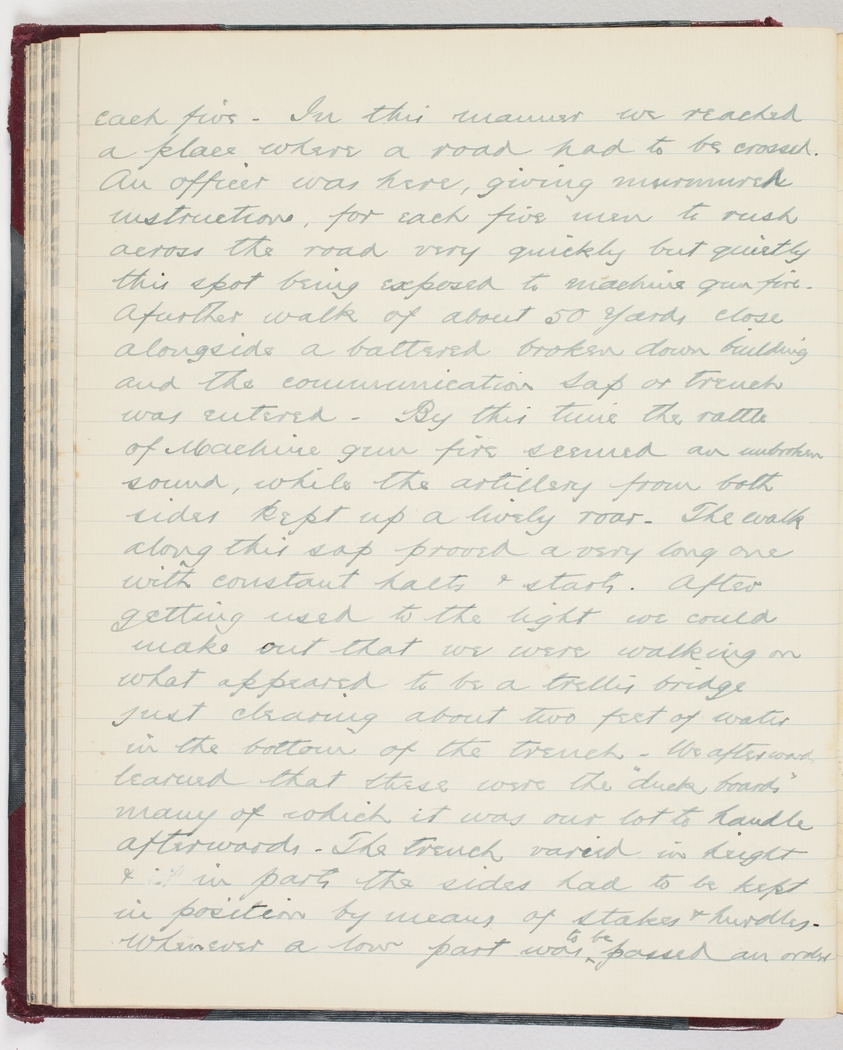 each five - In this manner we reached
a place where a road had to be crossed.
An officer was here, giving murmured
instructions, for each five men to rush
across the road very quickly but quietly
this spot being exposed to machine gun fire.
A further walk of about 50 yards close
alongside a battered broken down building
and the communication Sap or trench
was entered - By this time the rattle
of Machine gun fire seemed an unbroken
sound, while the artillery from both
sides kept up a lively roar - The walk
along this sap proved a very long one
with constant halts & starts. After
getting used to the light we could
make out that we were walking on
what appeared to be a trellis bridge
just clearing about two feet of water
in the bottom of the trench - We afterward
learned that these were the "duck boards"
many of which it was our lot to handle
afterwards - The trench varied in height
& in parts the sides had to be kept
in position by means of stakes & hurdles -
Whenever a low part was to be passed an order